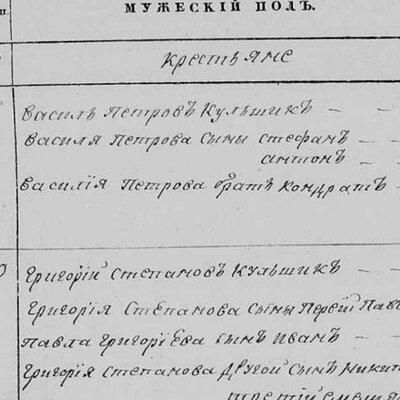 МУЖЕСКІЙ ПОЛЪ.
Крестьяне
Василь Петровъ Кульшикъ
Василя Петрова Сыны Стефанъ
Антонъ
Василія Петрова братъ Кондратъ
Григорій Степановъ Кульшикъ
Григорія Степанова Сыны Павелъ
Павла Григоріева Сынъ Иванъ
Григорія Степанова Другой Сынъ
третій